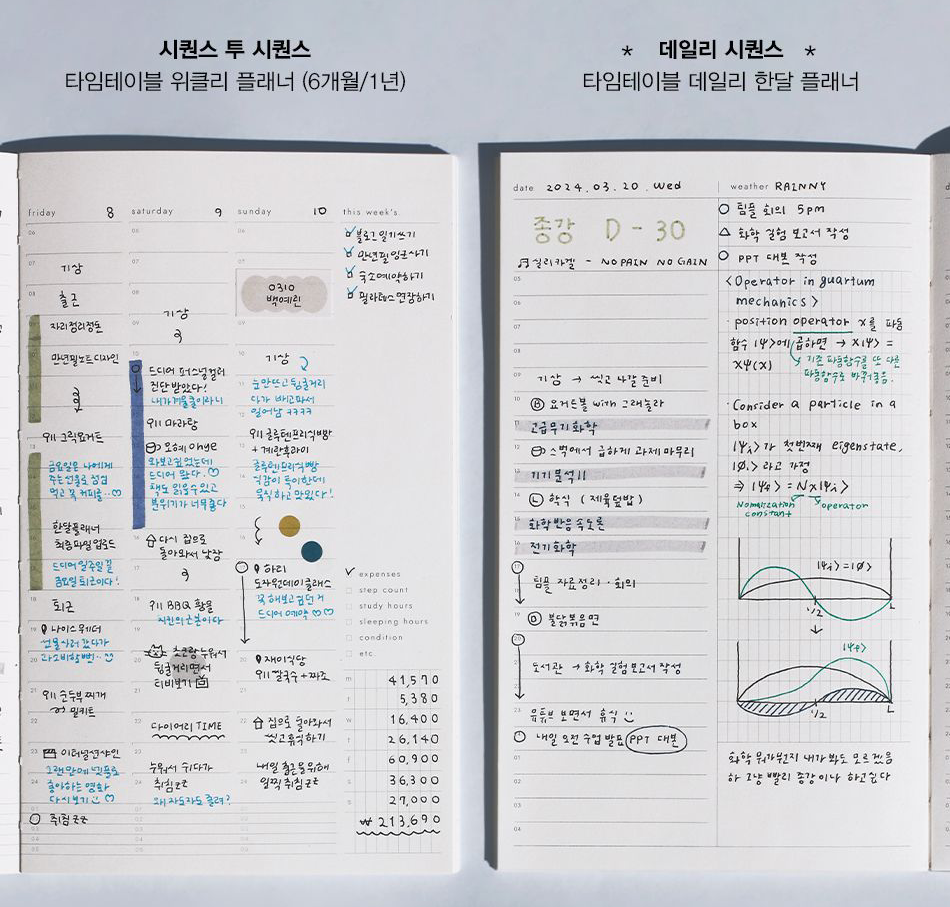 시퀀스 투 시퀀스
타임테이블 위클리 플래너 (6개월/1년)
* 데일리 시퀀스 *
타임테이블 데일리 한달 플래너
friday 8
기상
출근
자리정리정돈
만년필노트디자인
점심 그릭요거트
금요일은 나에게
주는 선물로 점심
먹고 꼭 커피를..♡
한달플래너
최종파일업로드
드디어 일주일 끝
금요일 퇴근이다!
퇴근
나이스웨더
선물사러 갔다가
과소비할뻔..
저녁 순두부찌개
밀키트
이터널선샤인
그랜만에 넷플로
좋아하는 영화
다시보기 ♡
취침zz
saturday 9
기상
드디어 퍼스널컬러
진단 받았다!
내가겨울쿨이라니
점심 마라탕
오헤 ohye
와보고싶었는데
드디어 왔다.♡
책도 읽을 수 있고
분위기가 너무좋다
다시 집으로
돌아와서 낮잠
저녁 BBQ 황올
치킨의 근본이다
초코랑 누워서
뒹굴거리면서
티비보기
다이어리 TIME
누워서 쉬다가
취침zz
왜 자도자도 졸려?
sunday 10
0310
백예린
기상
눈안뜨고 뒹굴거리
다가 배고파서
일어남 ㅋㅋㅋㅋ
점심 글루텐프리식빵
+ 계란후라이
글루텐프리식빵
식감이 특이한데
묵직하고 맛있다!
하리
도자원데이클래스
꼭 해보고싶던거
드디어 예약 ♡♡
재미식당
저녁 칼국수 + 짜조
집으로 돌아와서
씻고휴식하기
내일 출근을위해
일찍 취침zz
this week's
블로그 일기쓰기
만년필 잉크사기
숙소예약하기
필라테스연장하기
expenses
step count
study hours
sleeping hours
condition
etc.
m 41,570
t 5,380
w 16,400
t 26,140
f 60,900
s 36,300
s 27,000
₩ 213,690
date 2024.03.20.Wed
weather RAINNY
종강 D-30
실리카겔 - NO PAIN NO GAIN
기상 → 씻고 나갈 준비
Ⓑ 요거트볼 with 그래놀라
고급무기화학
스벅에서 급하게 과제 마무리
기기분석 II
Ⓛ 학식 (제육덮밥)
화학반응속도론
전기화학
팀플 자료정리 · 회의
Ⓓ 불닭볶음면
도서관 → 화학실험보고서 작성
유튜브 보면서 휴식
내일 오전 수업 발표 PPT 대본
○ 팀플 회의 5pm
△ 화학 실험 보고서 작성
○ PPT 대본 작성
<Operator in quartum
mechanics>
· position operator x를 파동
함수 |Ψ>에 곱하면 → x|Ψ> =
xΨ(x)
기존 파동함수를 또 다른
파동함수로 바꿔줌.
· Consider a particle in a
box
|Ψi>가 첫번째 eigenstate,
|∅>라고 가정
⇒ |Ψf> = N x|Ψi>
Nomalization
constant
operator
|Ψi>=|∅>
1/2
L
|Ψf>
1/2
L
화학 뭐가뭔지 내가봐도 모르겠음
하 그냥 빨리 종강이나 하고싶다